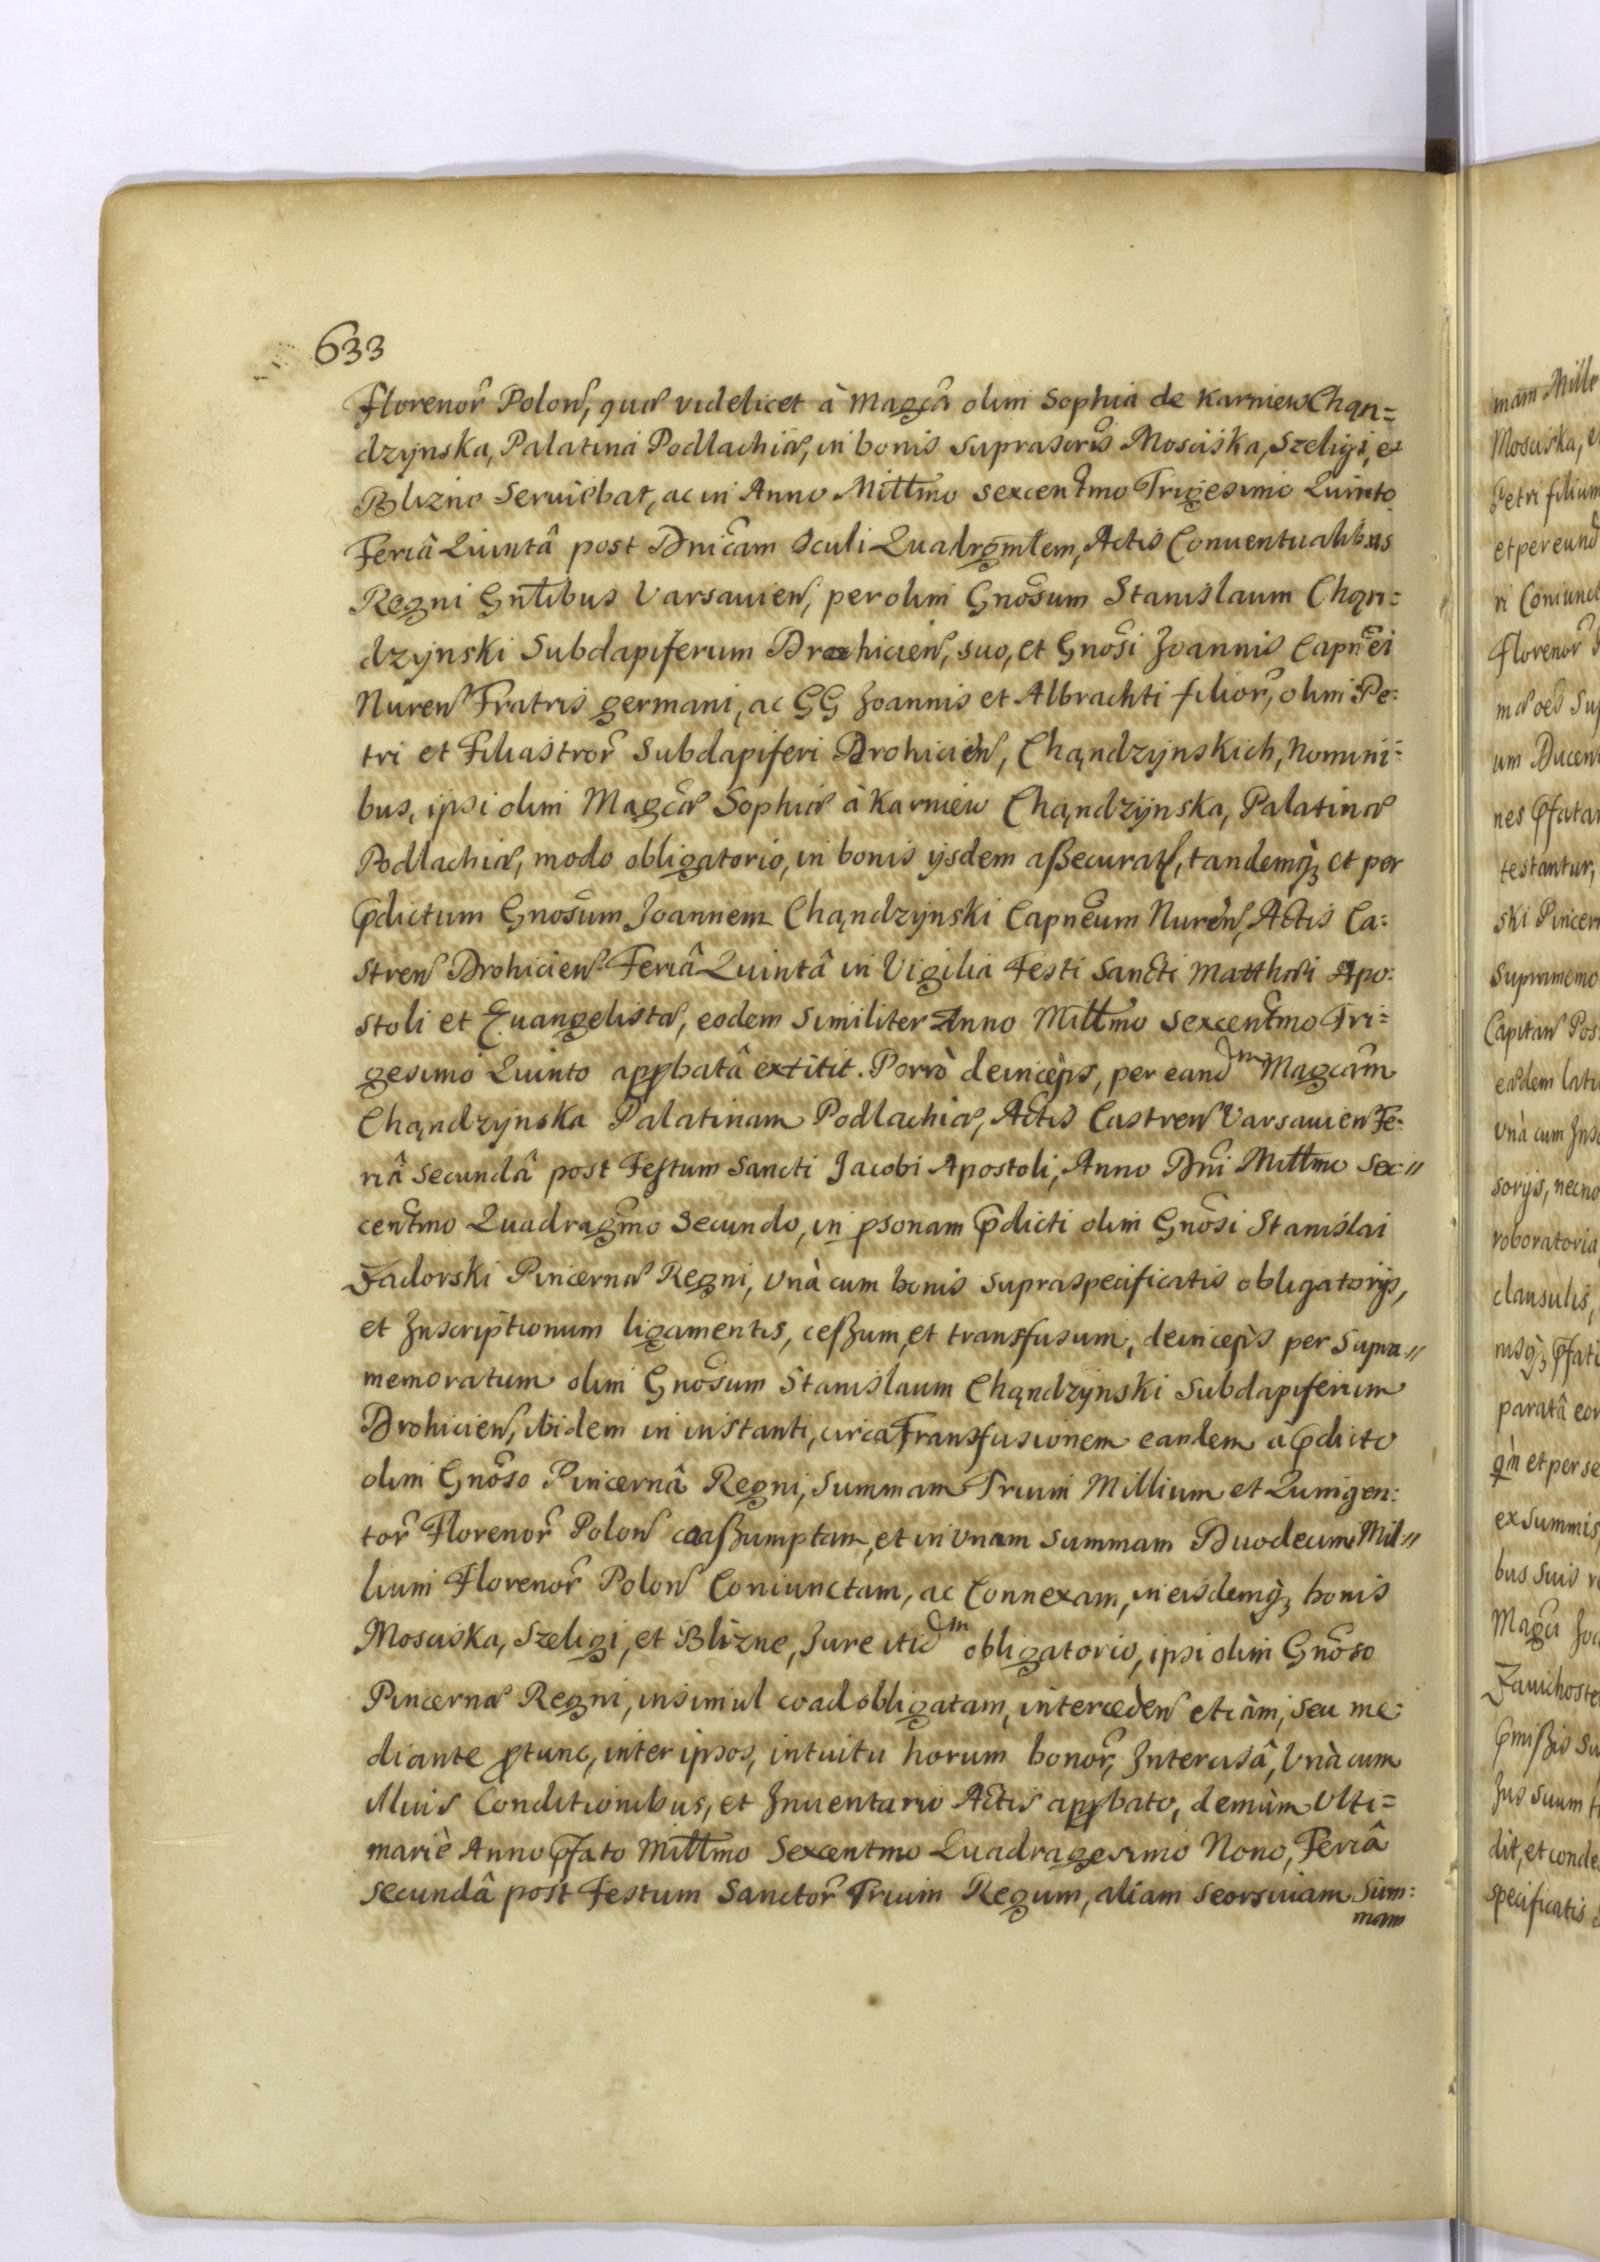 633
Florenor Polon, quæ videlicet à Magca olim Sophia de Karniew Chąn=
dzynska, Palatina Podlachiæ, in bonis suprascris Mosciska, Szeligi, et
Blizne Seruiebat, ac in Anno Millmo sexcentmo Trigesimo Quinto
Feriâ Quintâ post Dnicam Oculi Quadrgmlem, Actis Conuentualibus
Regni Gnlibus Varsauien, per olim Gnosum Stanislaum Chąn=
dzynski Subdapiferum Drohicien, suo, et Gnosi Joannis Capnei
Nuren Fratris germani, ac GG Joannis et Albrachti filior, olim Pe=
tri et Filiastror Subdapiferi Drohicien, Chąndzynskich, Nomini=
bus, ipsi olim Magcæ Sophiæ à Karniew Chąndzynska, Palatinæ
Podlachiæ, modo obligatorio, in bonis ijsdem aßecurat, tandemq; et per
Pdictum Gnosum Joannem Chąndzynski Capneum Nuren, Actis Ca=
stren Drohicien Feriâ Quintâ in Vigilia Festi Sancti Matthæi Apo=
stoli et Euangelistæ, eodem similiter Anno Millmo sexcentmo Tri=
gesimo Quinto appbatâ extitit. Porrò deinceps, per eandm Magcam
Chąndzynska Palatinam Podlachiæ, Actis Castren Varsauien Fe=
riâ secundâ post Festum Sancti Jacobi Apostoli, Anno Dni Millmo Sex=
centmo Quadragmo secundo, in psonam Pdicti olim Gnosi Stanislai
Zadorski Pincernæ Regni, Vnà cum bonis supraspecificatis obligatorijs,
et Inscriptionum ligamentis, ceßum, et transfusum, deinceps per Supra=
memoratum olim Gnosum Stanislaum Chąndzynski Subdapiferum
Drohicien, ibidem in instanti, circa Transfusionem eandem à Pdicto
olim Gnoso Pincernâ Regni, summam Trium Millium et Quingen=
tor Florenor Polon coaßumptam, et in Vnam summam Duodecim Mil=
lium Florenor Polon Coniunctam, ac Connexam, in eisdemq; bonis
Mosciska, Szeligi, et Blizne, Jure itidm obligatorio, ipsi olim Gnoso
Pincernæ Regni, insimul coadobligatam, interceden etiàm, seu me=
diante ptunc, inter ipsos, intuitu horum bonor, Intercisâ, Vnà cum
illius Conditionibus, et Inuentario Actis appbato, demùm Ulti=
mariè Anno Pfato Millmo Sexcentmo Quadragesimo Nono, Feriâ
secundâ post Festum Sanctor Trium Regum, aliam seorsiuam Sum=
mam